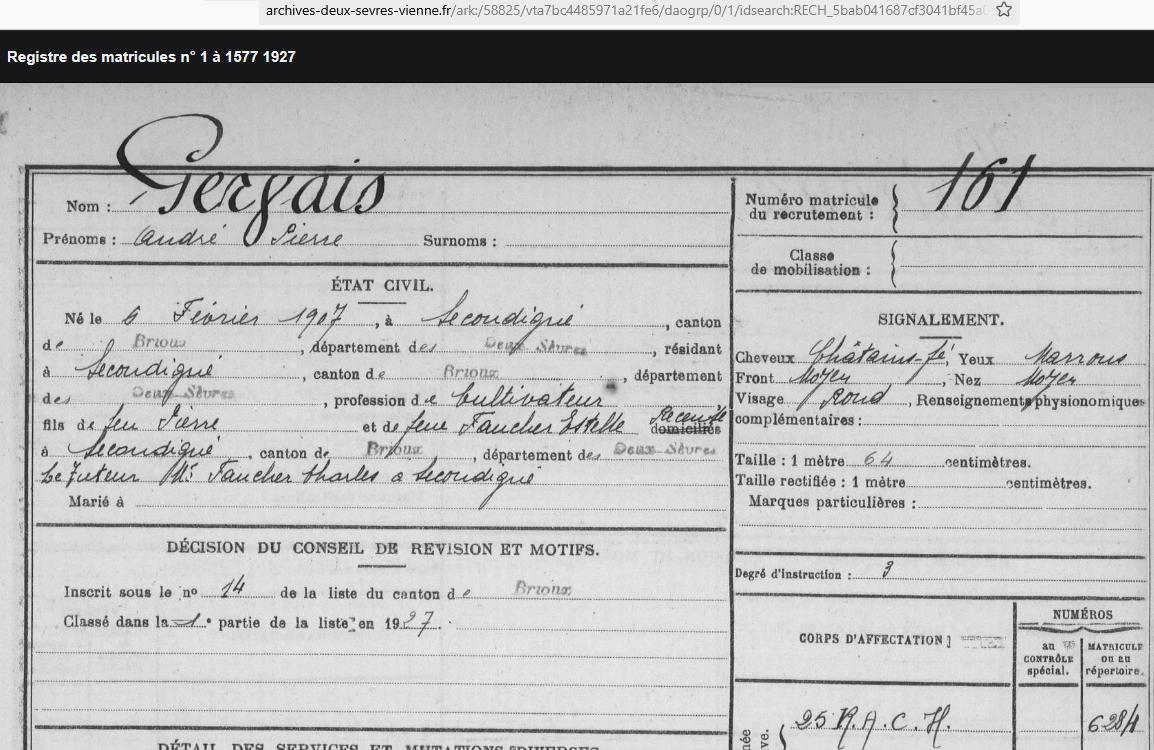 archives-deux-sevres-vienne.fr/ark:/58825/vta7bc4485971a21fe6/daogrp/0/1/idsearch:RECH_5bab041687cf3041bf45a0
Registre des matricules n° 1 à 1577 1927
Nom : Gervais
Prénoms : André Pierre Surnoms :
ÉTAT CIVIL.
Né le 5 Février 1907, à Secondigné, canton
de Brioux, département des Deux Sèvres, résidant
à Secondigné, canton de Brioux, département
des Deux Sèvres, profession de Cultivateur
fils de feu Pierre et de feue Faucher Estelle domiciliés Recensé
à Secondigné, canton de Brioux, département des Deux Sèvres
Le Tuteur Mr. Faucher Charles a Secondigné
Marié à
DÉCISION DU CONSEIL DE REVISION ET MOTIFS.
Inscrit sous le no 14 de la liste du canton de Brioux
Classé dans la 1e partie de la liste en 1927.
DÉTAIL DES SERVICES ET MUTATIONS DIVERSES
Numéro matricule
du recrutement : 161
Classe
de mobilisation :
SIGNALEMENT.
Cheveux Châtains-fé, Yeux Marrons
Front Moyen, Nez Moyen
Visage Rond, Renseignements physionomiques
complémentaires :
Taille : 1 mètre 64 centimètres.
Taille rectifiée : 1 mètre centimètres.
Marques particulières :
Degré d'instruction : 3
CORPS D'AFFECTATION
NUMÉROS
au
CONTRÔLE
spécial.
MATRICULE
ou au
répertoire.
25 R.A.C.H.